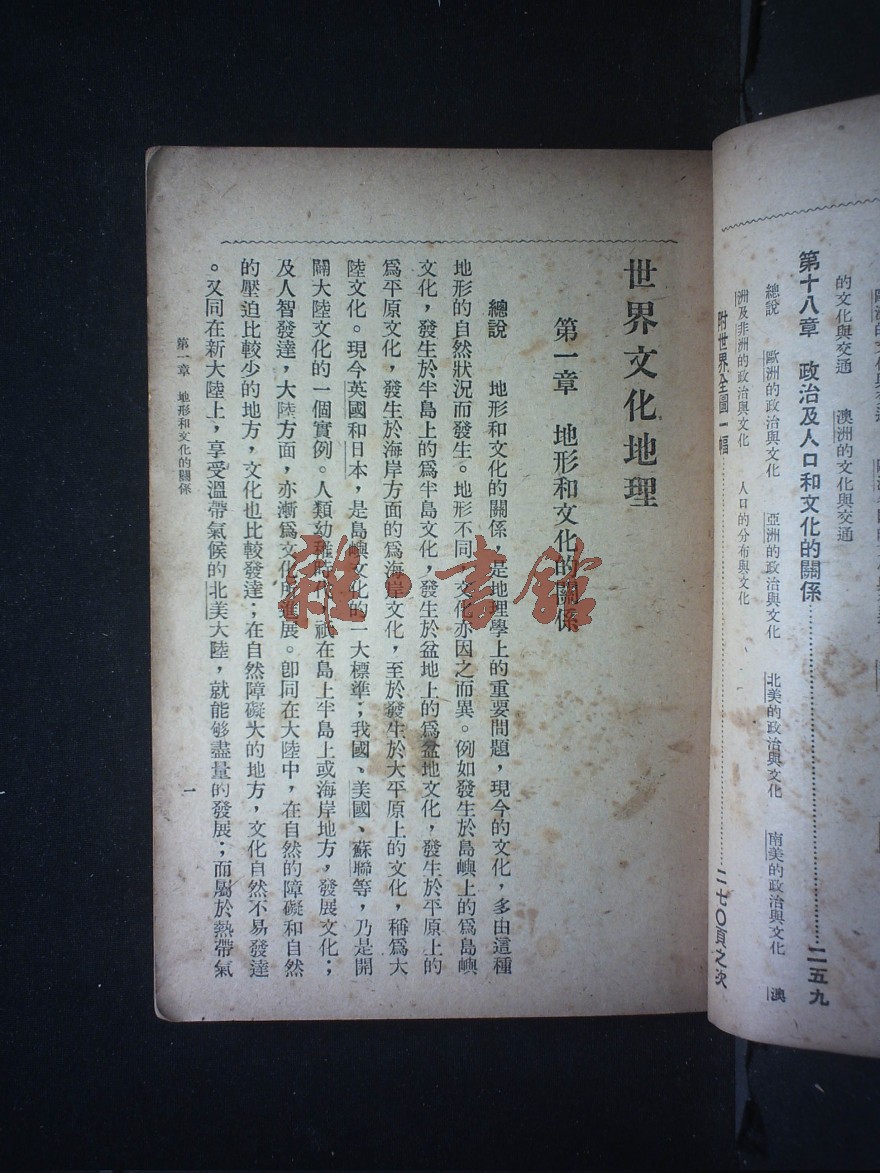 的文化與交通　澳洲的文化與交通
第十八章　政治及人口和文化的關係……二五九
總說　歐洲的政治與文化　亞洲的政治與文化　北美的政治與文化　南美的政治與文化　澳
洲及非洲的政治與文化　人口的分布與文化
附世界全圖一幅……二七〇頁之次
世界文化地理
第一章　地形和文化的關係
總說　地形和文化的關係，是地理學上的重要問題，現今的文化，多由這種
地形的自然狀況而發生。地形不同，文化亦因之而異。例如發生於島嶼上的爲島嶼
文化，發生於半島上的爲半島文化，發生於盆地上的爲盆地文化，發生於平原上的
爲平原文化，發生於海岸方面的爲海岸文化，至於發生於大平原上的文化，稱爲大
陸文化。現今英國和日本，是島嶼文化的一大標準；我國、美國、蘇聯等，乃是開
闢大陸文化的一個實例。人類幼稚時代，祇在島上半島上或海岸地方，發展文化；
及人智發達，大陸方面，亦漸爲文化所進展。卽同在大陸中，在自然的障礙和自然
的壓迫比較少的地方，文化也比較發達；在自然障礙大的地方，文化自然不易發達
。又同在新大陸上，享受溫帶氣候的北美大陸，就能够盡量的發展；而屬於熱帶氣
第一章　地形和文化的關係
一
雜·書館